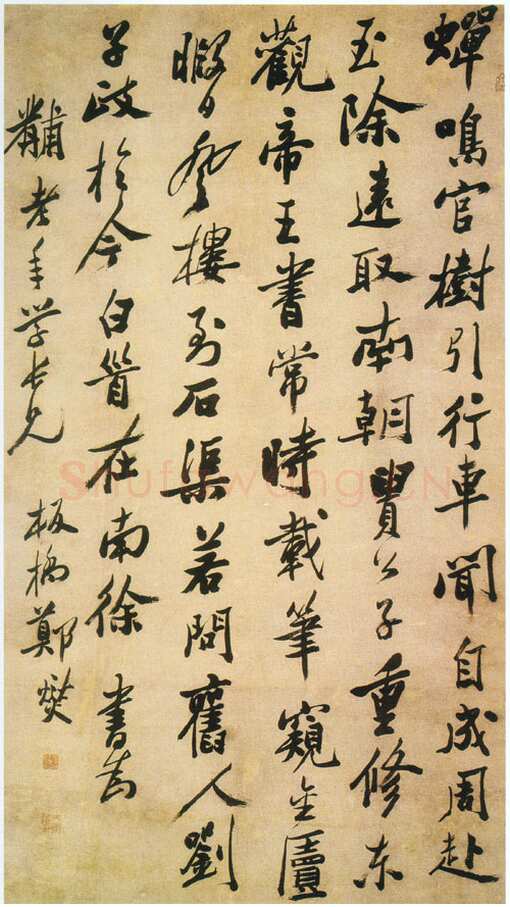 蟬鳴官樹引行車聞自成周赴
玉除遠取南朝貴公子重修東
觀帝王書常時載筆窺金匱
暇日登樓到石渠若問舊人劉
子政於今白首在南徐 書為
黼老年學長兄 板橋鄭燮
Shufawang.CN